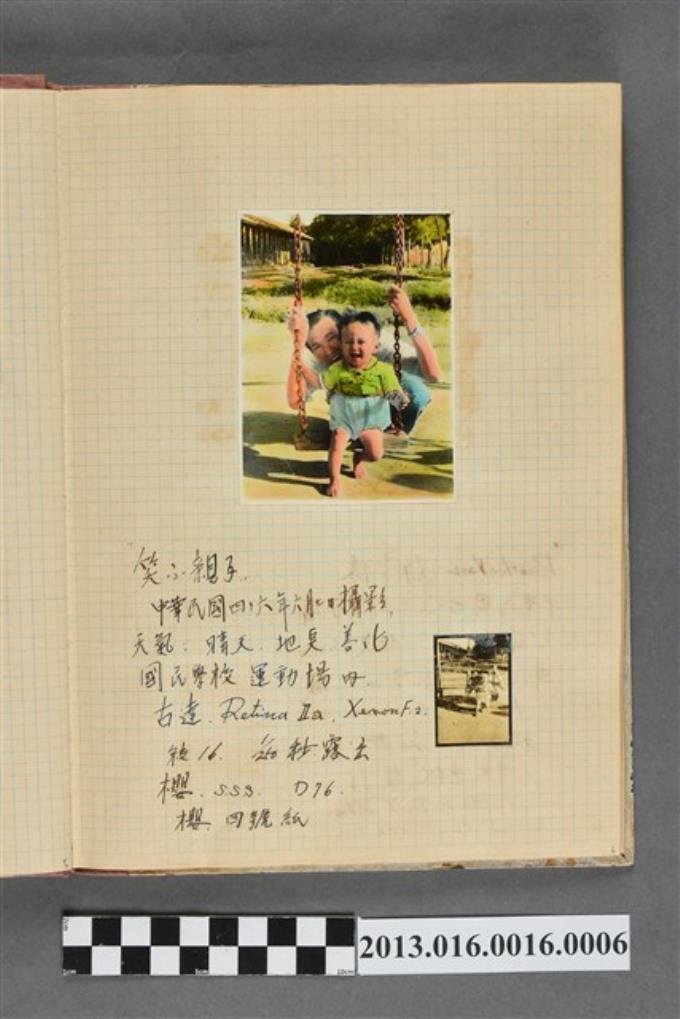 笑ふ親子.
中華民國四十六年六月七日攝影.
天氣: 晴天. 地點 善化
國民學校 運動場內.
古達. Retina IIa. Xenon F.2.
鏡16. 1/50 秒露出
櫻. SSS. D76.
櫻. 四號紙
2013.016.0016.0006